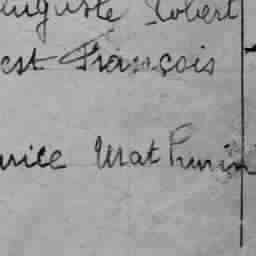 Auguste Robert
est François
urice Mathurin